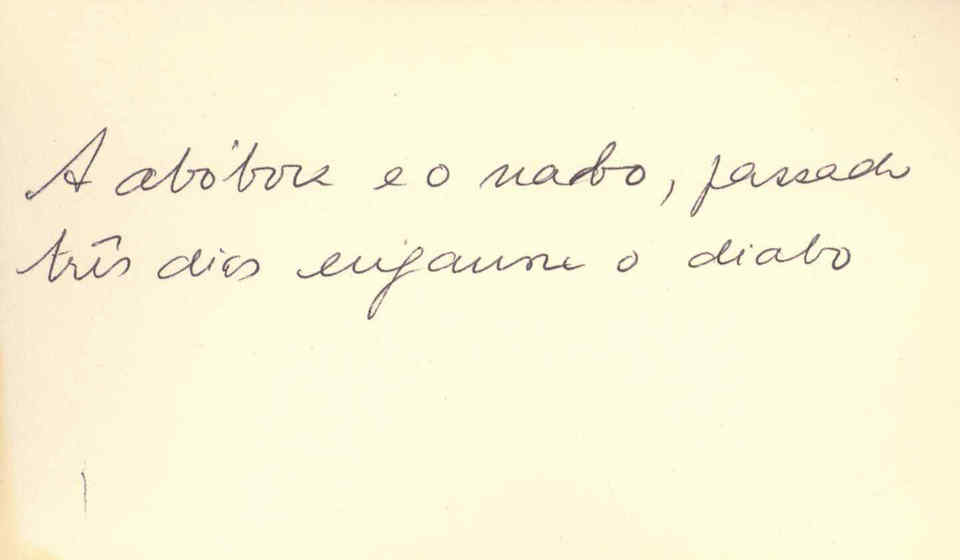 A abóbora e o nabo, passado
três dias o diabo